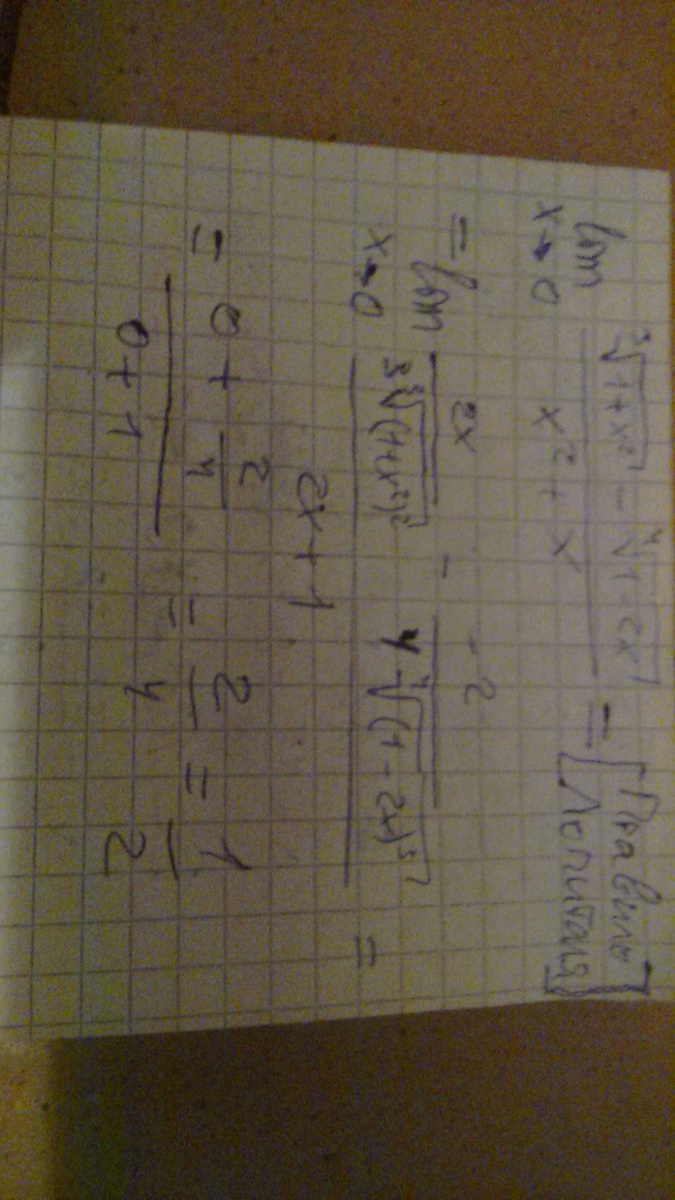 lim x→0 (∛(1+x²) - ∜(1-2x)) / (x² + x) = [Правило Лопиталя]
= lim x→0 (2x / (3∛((1+x²)²)) - (-2) / (4∜((1-2x)³))) / (2x+1) =
= (0 + 2/4) / (0+1) = 2/4 = 1/2